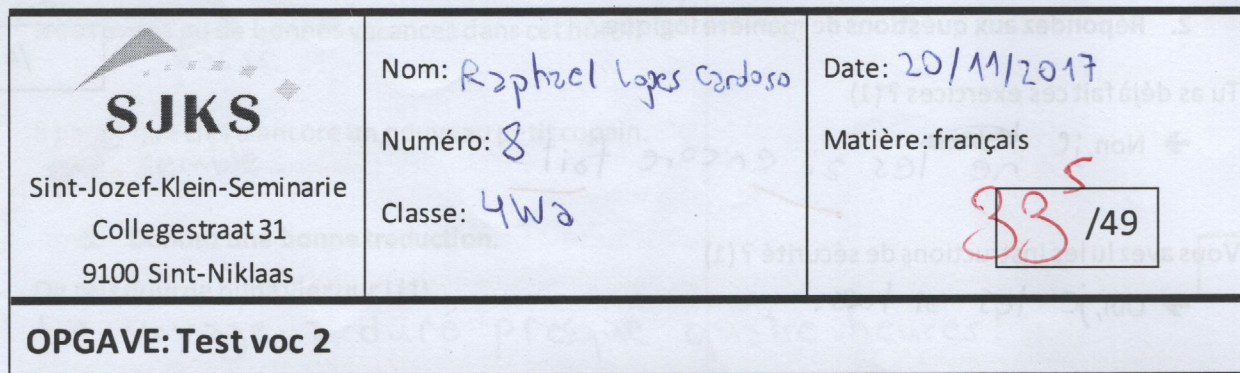 SJKS
Sint-Jozef-Klein-Seminarie
Collegestraat 31
9100 Sint-Niklaas
Nom: Raphael Lopes Cardoso
Numéro: 8
Classe: 4Wa
Date: 20/11/2017
Matière: français
33 5 /49
OPGAVE: Test voc 2